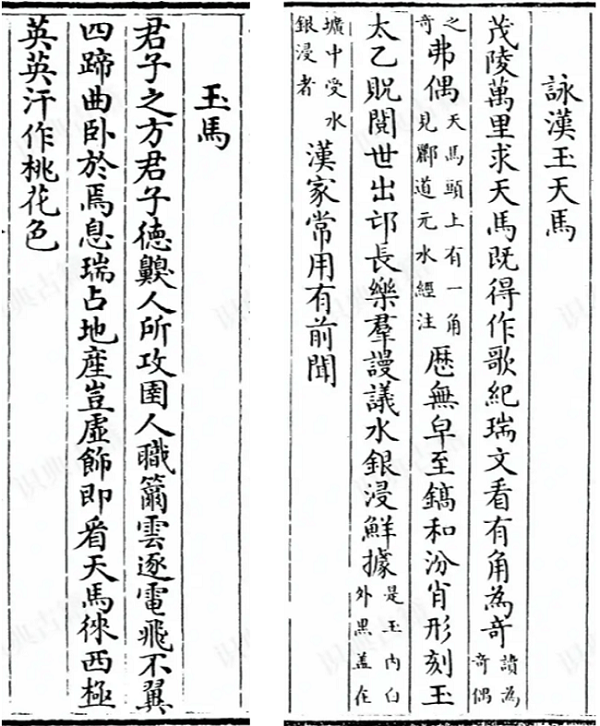 詠漢玉天馬
茂陵萬里求天馬既得作歌紀瑞文看有角為奇讀為奇偶
之奇弗偶天馬頭上有一角見酈道元水經注歷無皁至鎬和汾肖形刻玉
太乙貺閱世出邙長樂羣謾議水銀浸鮮據是玉内白外黒盖在
壙中受水銀浸者漢家常用有前聞
玉馬
君子之方君子德人所攻圉人職籋雲逐電飛不翼
四蹄曲卧於焉息瑞占地産豈虛飾即看天馬徠西極
英英汗作桃花色